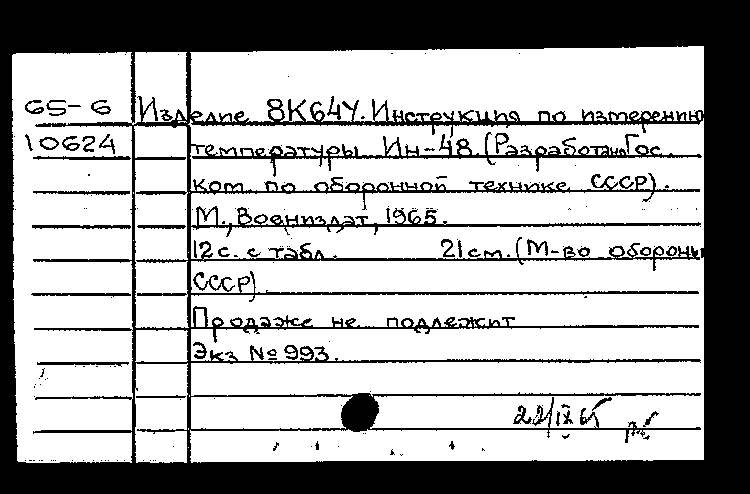 65-6 Изделие 8К64У. Инструкция по измерению
10624 температуры Ин-48 (Разработано Гос.
ком. по оборонной технике СССР).
М., Воениздат, 1965.
12 с. с табл. 21 см. (М-во обороны
СССР).
Продаже не подлежит
Экз № 993.
22/IX 65